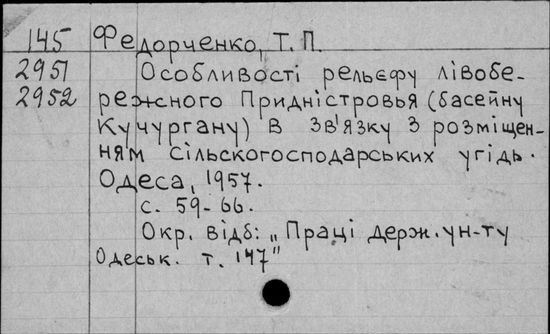 145 Федорченко, Т. П.
2951 Особливості рельєфу лівобе-
2952 режного Придністровья (басейну
Кучургану) в зв'язку з розміщен-
ням сільскогосподарських угідь.
Одеса, 1957.
с. 59-66.
Окр. відб: „Праці держ. ун-ту
Одеськ. т. 147"